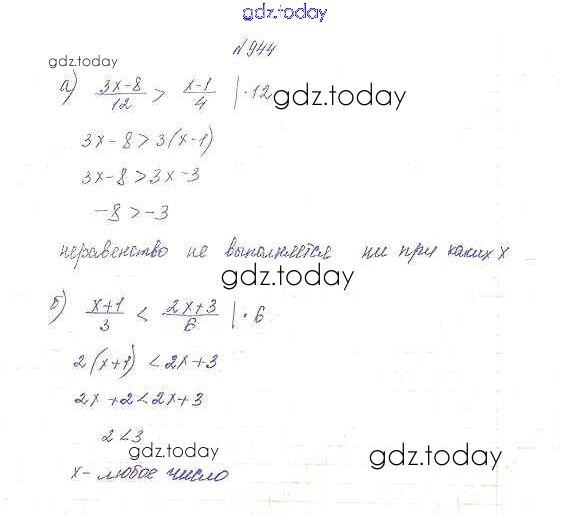 gdz.today
№944
gdz.today
а) (3x-8)/12 > (x-1)/4 |·12 gdz.today
3x-8>3(x-1)
3x-8>3x-3
-8>-3
неравенство не выполняется ни при каких x
gdz.today
б) (x+1)/3 < (2x+3)/6 |·6
2(x+1)<2x+3
2x+2<2x+3
2<3
gdz.today gdz.today
x- любое число